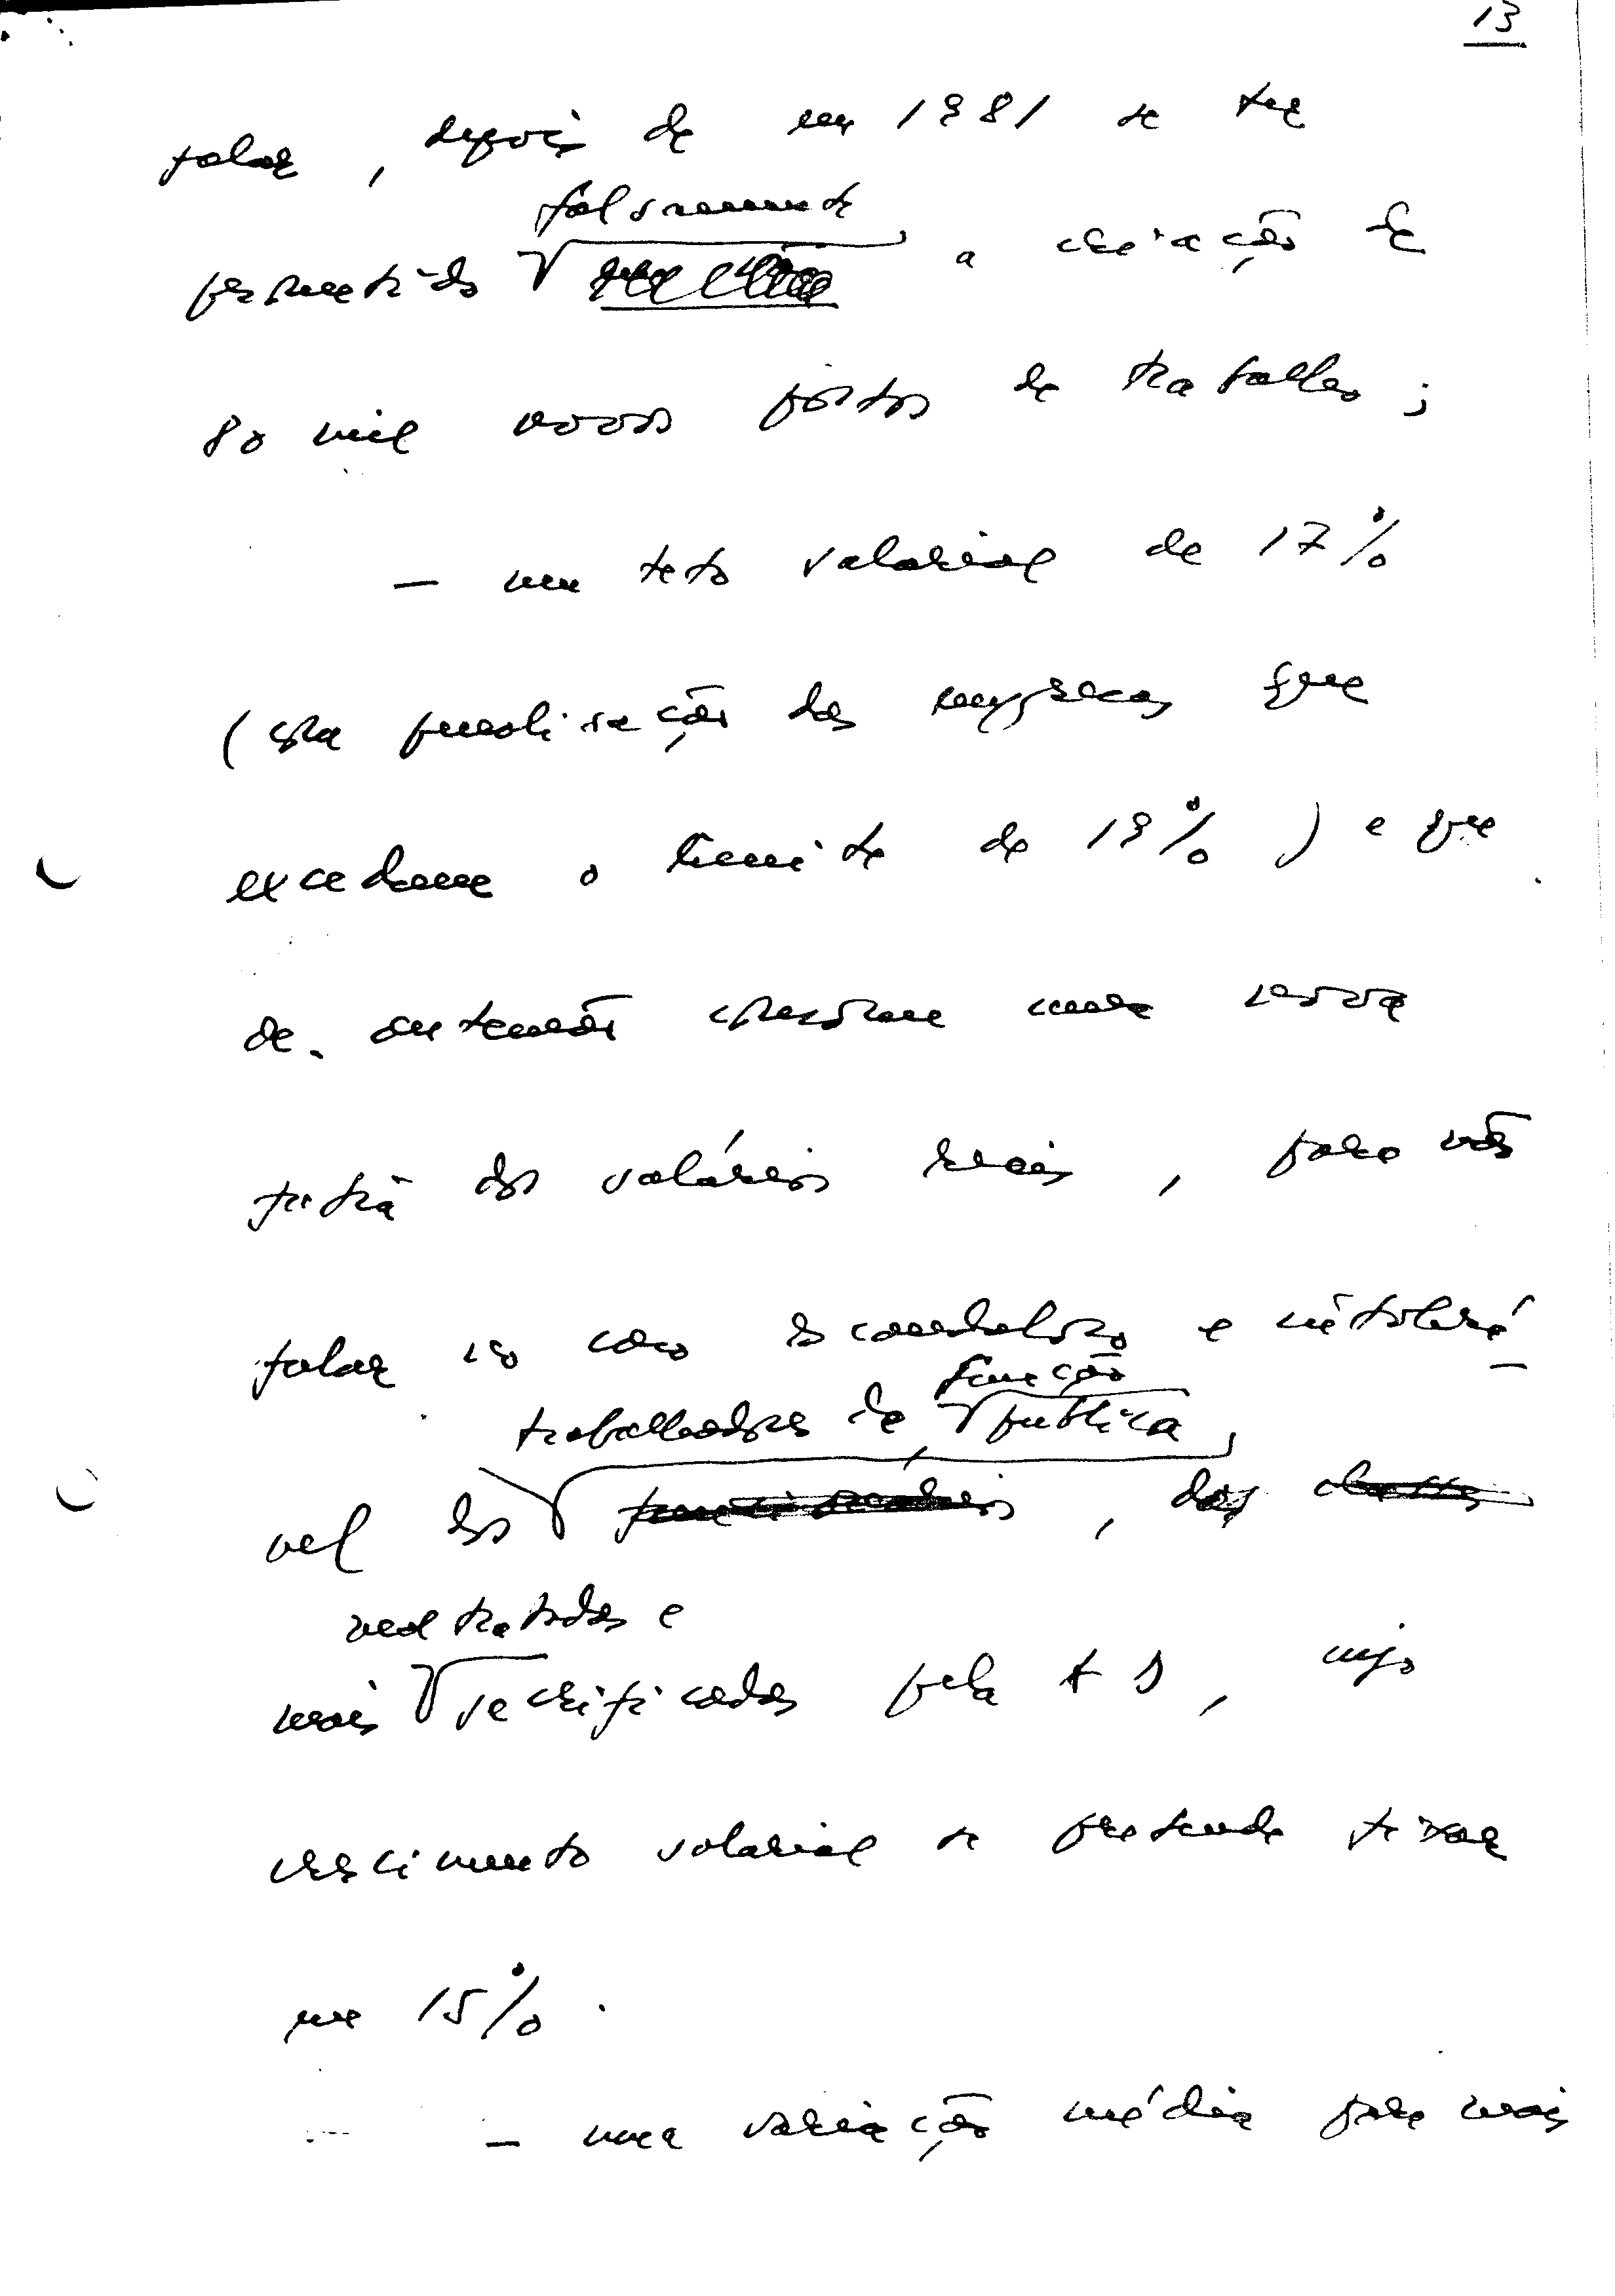 13
falar, depois de em 1981 se ter
falsamente
prometido a criação de
80 mil novos postos de trabalho;
— um teto salarial de 17%
(com penalização das empresas que
excedam o limite de 19%) e que
de antemão uma nova
dos salários reais, para não
falar no caso escandaloso e intolerá-
função
trabalhadores da pública,
vel dos funcionários, das
maltratados e
mais sacrificados pela AD, cujo
crescimento salarial se pretende fixar
em 15%.
— uma variação média para mais